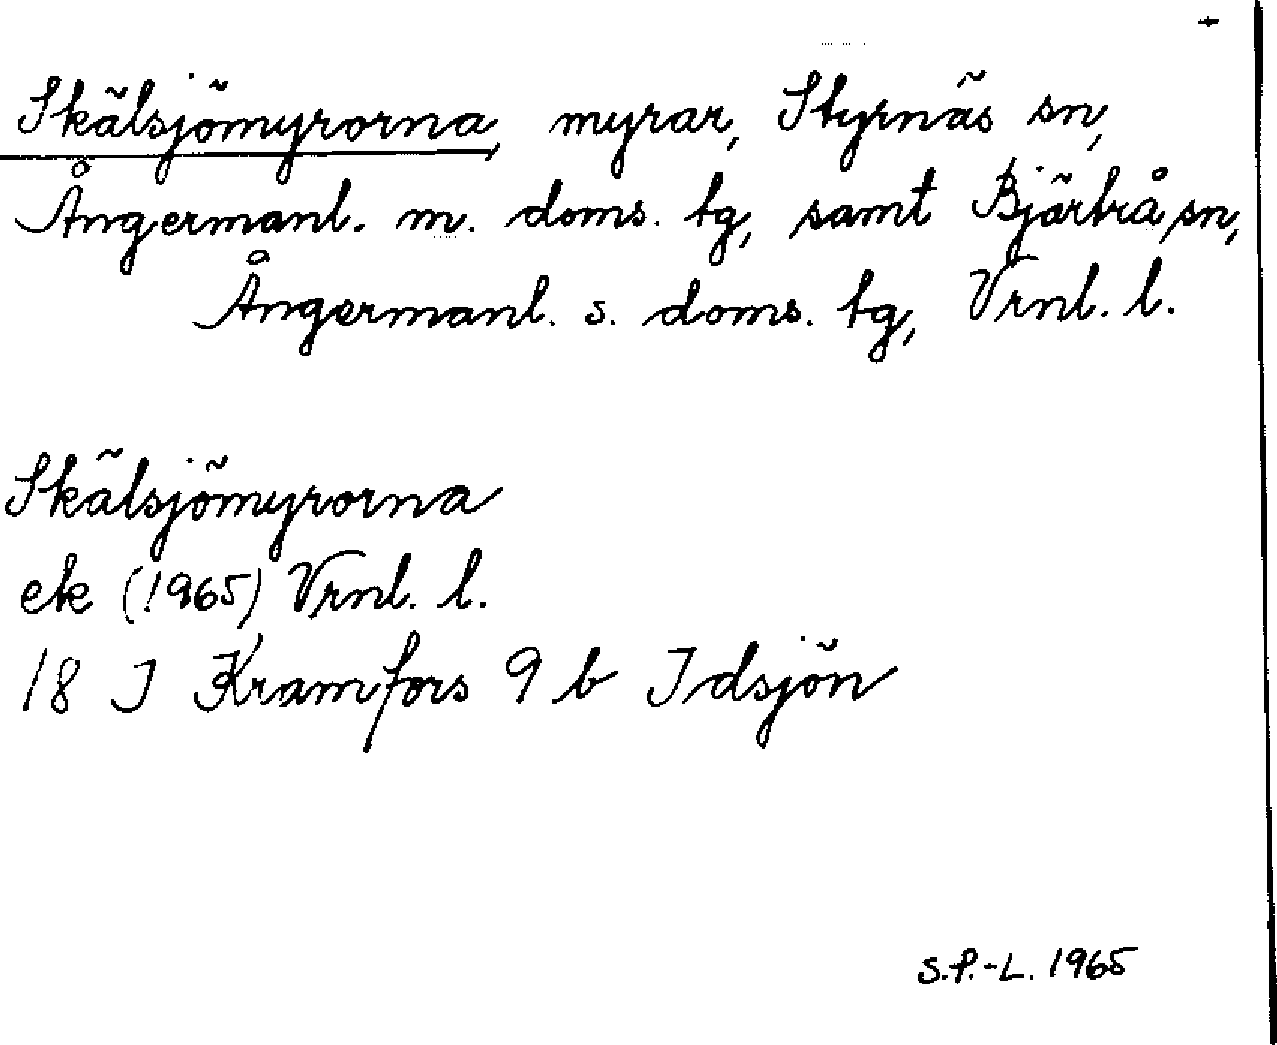 Skälsjömyrorna, myrar, Styrnäs sn,
Ångermanl. m. doms. tg, samt Bjärtrå sn,
Ångermanl. s. doms. tg, Vrnl. l.
Skälsjömyrorna
ek (1965) Vrnl. l.
18 I Kramfors 9 b Idsjön
S.P.-L. 1965